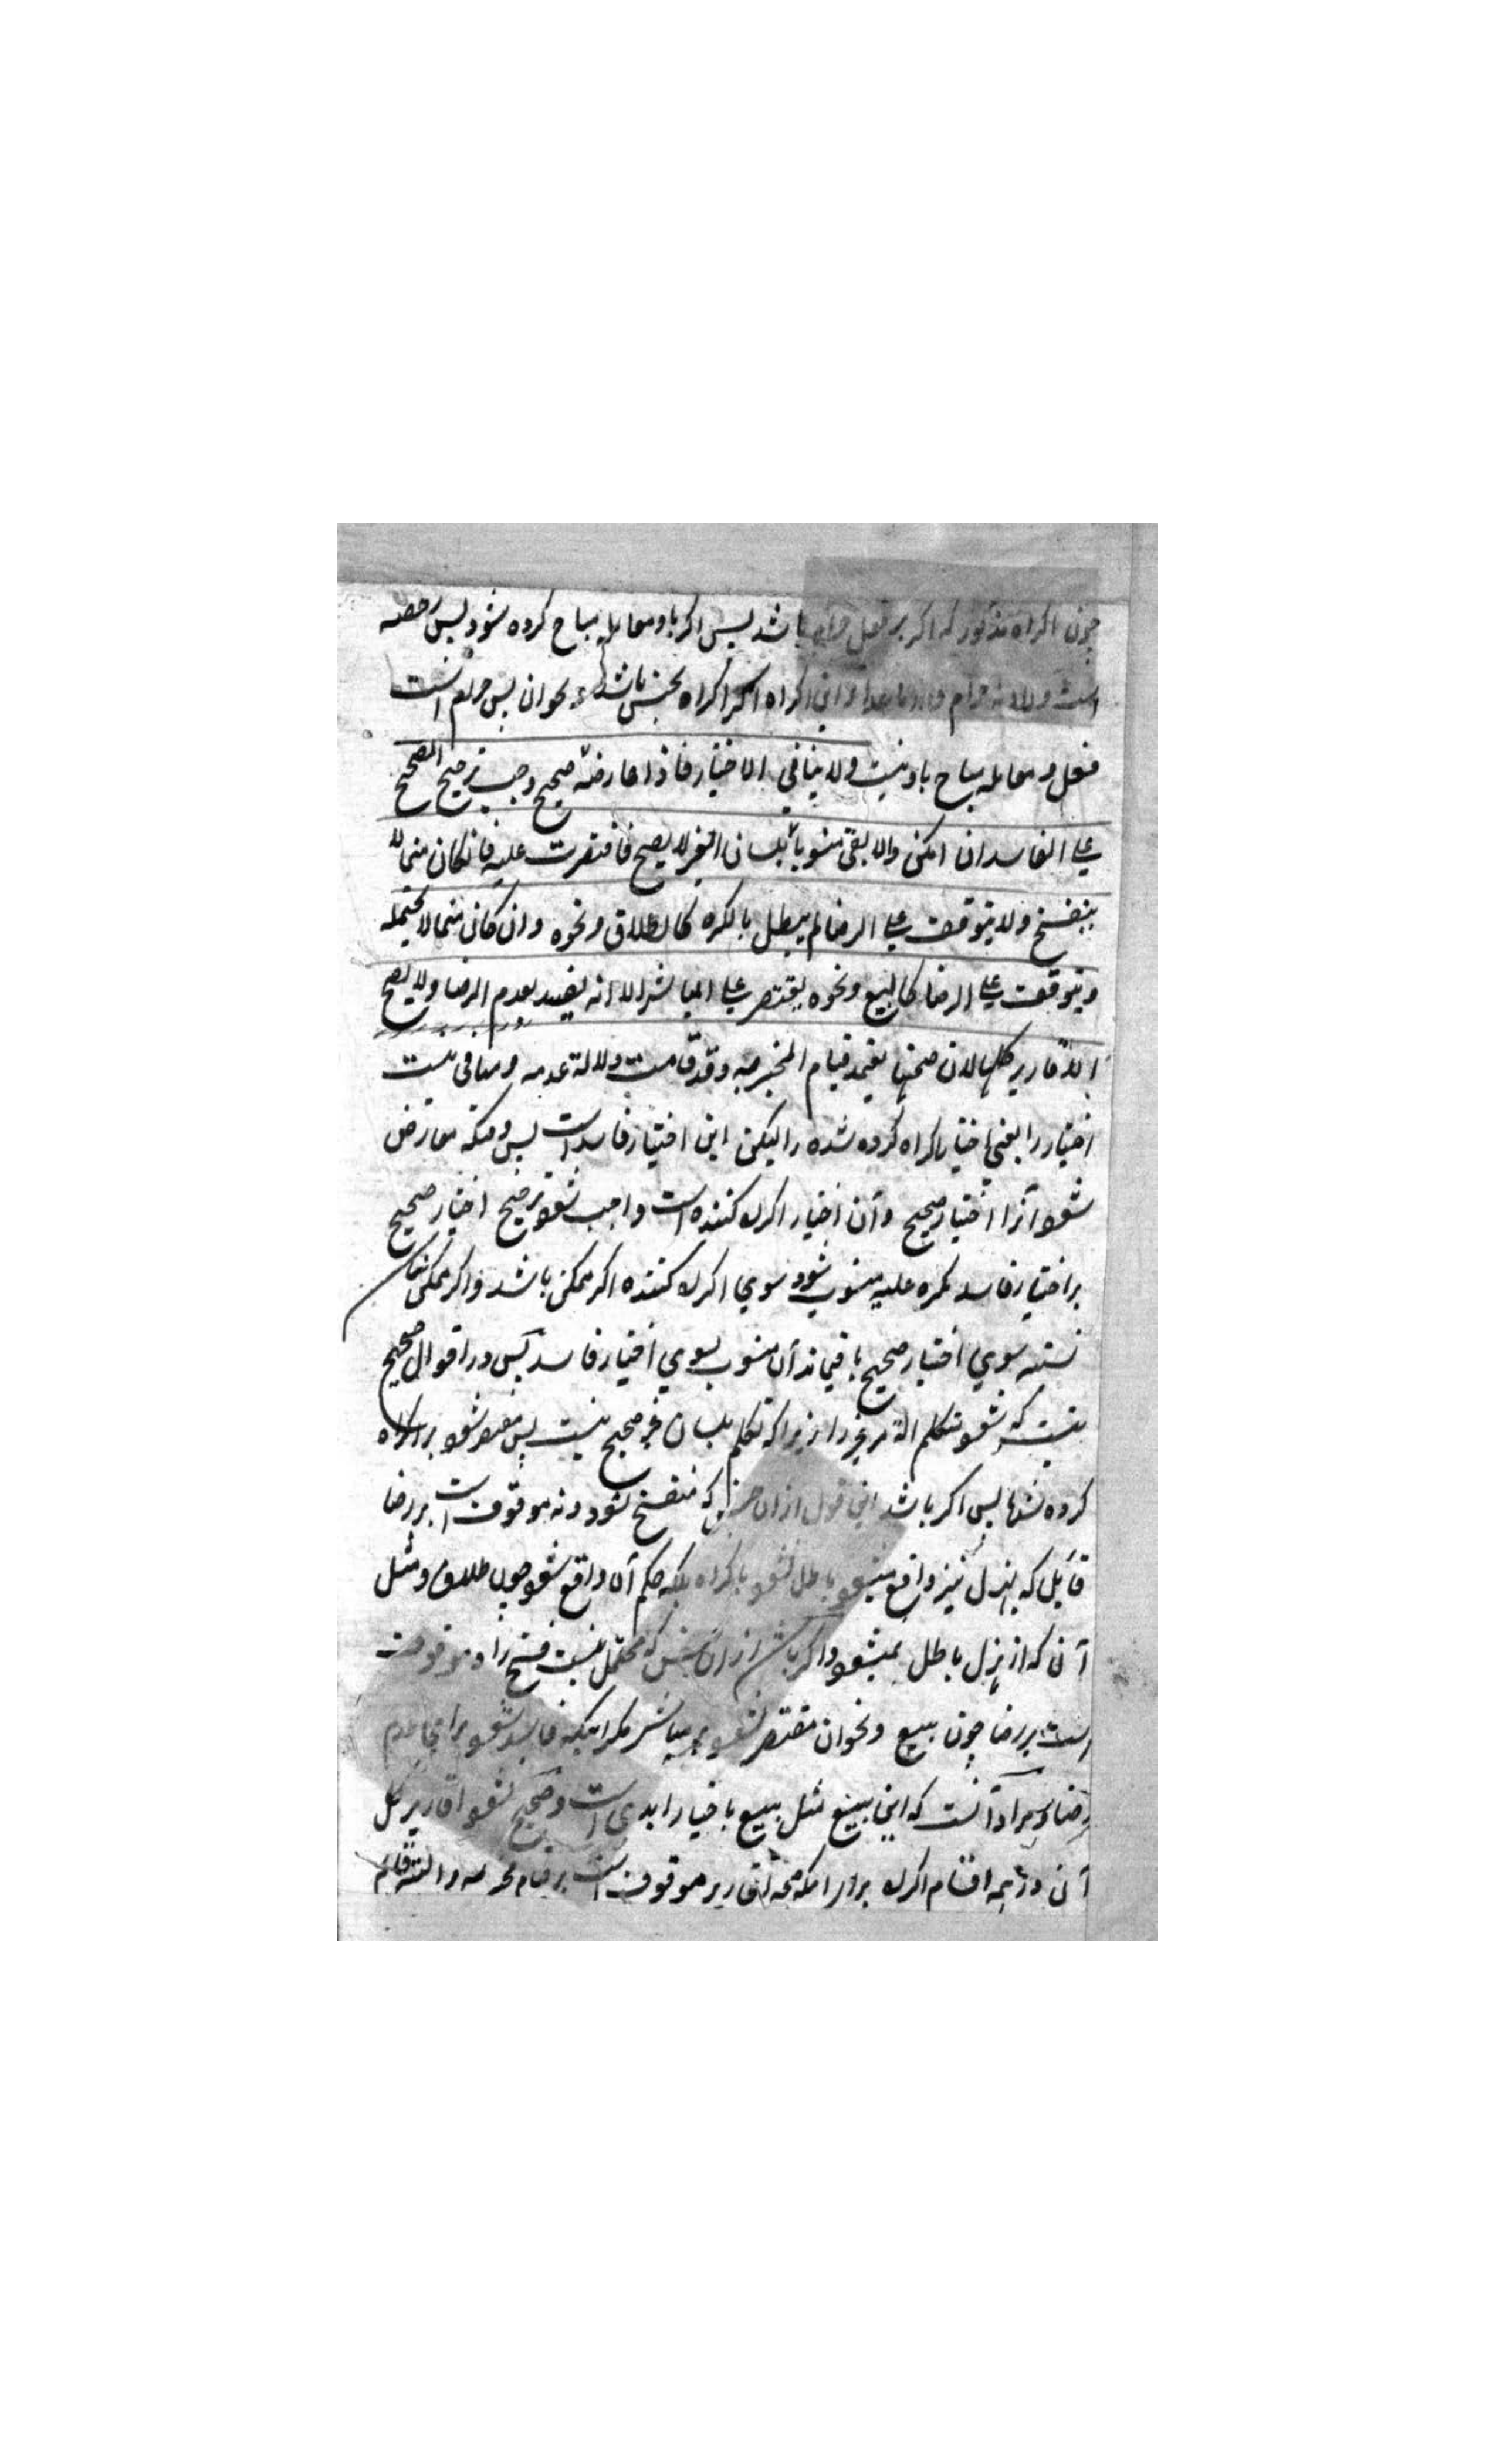 چون اکراه مذکور که اکر بر فعل حرام باشد پس اکر باو معامله مباح کرده شود پس رخصه
است والا نه حرام و این اکراه اکر اکراه بحبس باشد و نحو ان پس حرام است
فعل و معامله مباح باو نیست ولا ینافی الاختیار فاذا عارضه صحیح وجب ترجیح الصحیح
علی الفاسد ان امکن والا بقی منسوبا بلسان الغیر لا یصح فاقتصرت علیه فانکان مما لا
ینفسخ ولا یتوقف علی الرضا لم یبطل بالکره کالطلاق ونحوه وان کان مما لا یحتمله
ویتوقف علی الرضا کالبیع ونحوه یقتصر علی المباشر الا انه یفسد بعدم الرضا ولا یصح
الاقاریر کلها لان صحتها یعتمد قیام المخبر به وقد قامت دلالة عدمه و منافی نیست
اختیار را یعنی اختیار اکراه کرده شده را لیکن این اختیار فاسد است پس وقتیکه معارض
شود آنرا اختیار صحیح و آن اختیار اکراه کننده است واجب شود ترجیح اختیار صحیح
بر اختیار فاسد مکره علیه منسوب شود سوی اکراه کننده اکر ممکن باشد و اکر ممکن نباشد
نسبته سوی اختیار صحیح باقیماند آن منسوب بسوی اختیار فاسد پس در اقوال صحیح
نیست که شود متکلم الة مر غیر را زیرا که تکلم بلسان غیر صحیح نیست پس مقتصر شود بر اکراه
کرده شد پس اکر باشد این قول از ان جنس که منفسخ نشود و نه موقوف است بر رضا
قایل که بهزل نیز واقع میشود باطل نشود باکراه بلکه حکم آن واقع شود چون طلاق و مثل
آن که از هزل باطل نمیشود و اکر باشد از ان جنس که محتمل نیست فسخ را و موقوف
است بر رضا چون بیع و نحو ان مقتصر شود بر مباشر مکر اینکه فاسد شود برای عدم
رضا و مراد آنست که این بیع مثل بیع با خیار ابدی است و صحیح نشود اقاریر کل
آن در همه اقسام اکراه برای انکه صحه اقاریر موقوف است بر قیام مخبر به و البته قایم